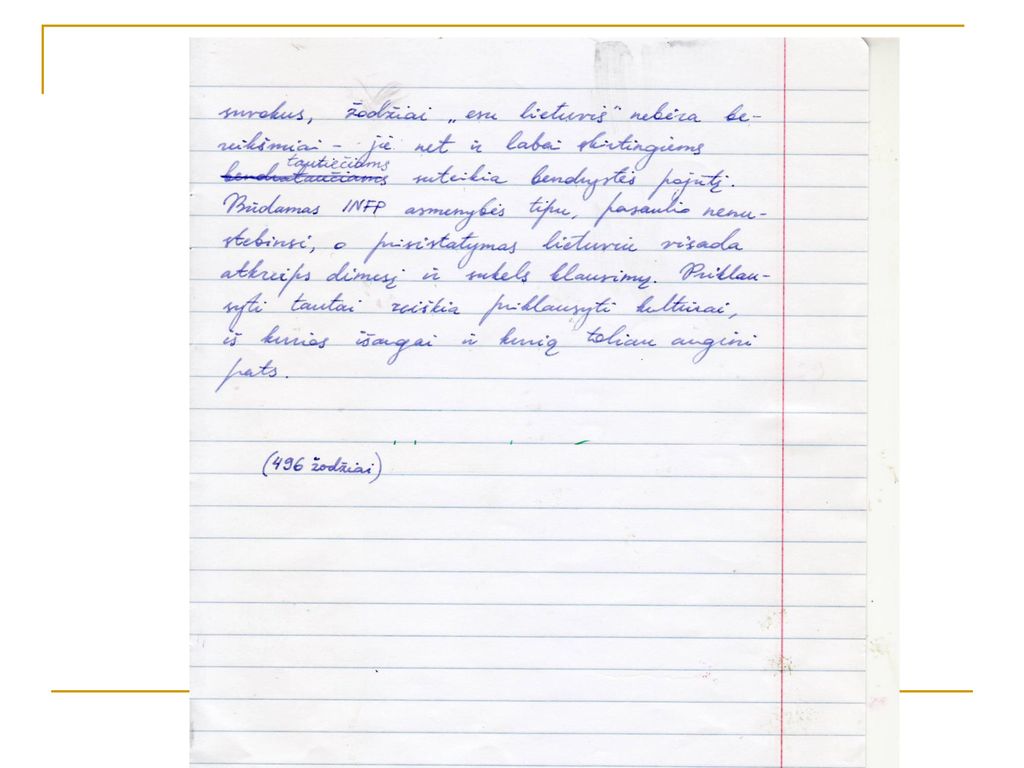 suvokus, žodžiai „esu lietuvis“ nebėra be-
reikšmiai – jie net ir labai skirtingiems
tautiečiams
bendrataučiams suteikia bendrystės pojūtį.
Būdamas INFP asmenybės tipu, pasaulio nenu-
stebinsi, o prisistatymas lietuviu visada
atkreips dėmesį ir sukels klausimų. Priklau-
syti tautai reiškia priklausyti kultūrai,
iš kurios išaugai ir kurią toliau augini
pats.
(496 žodžiai)